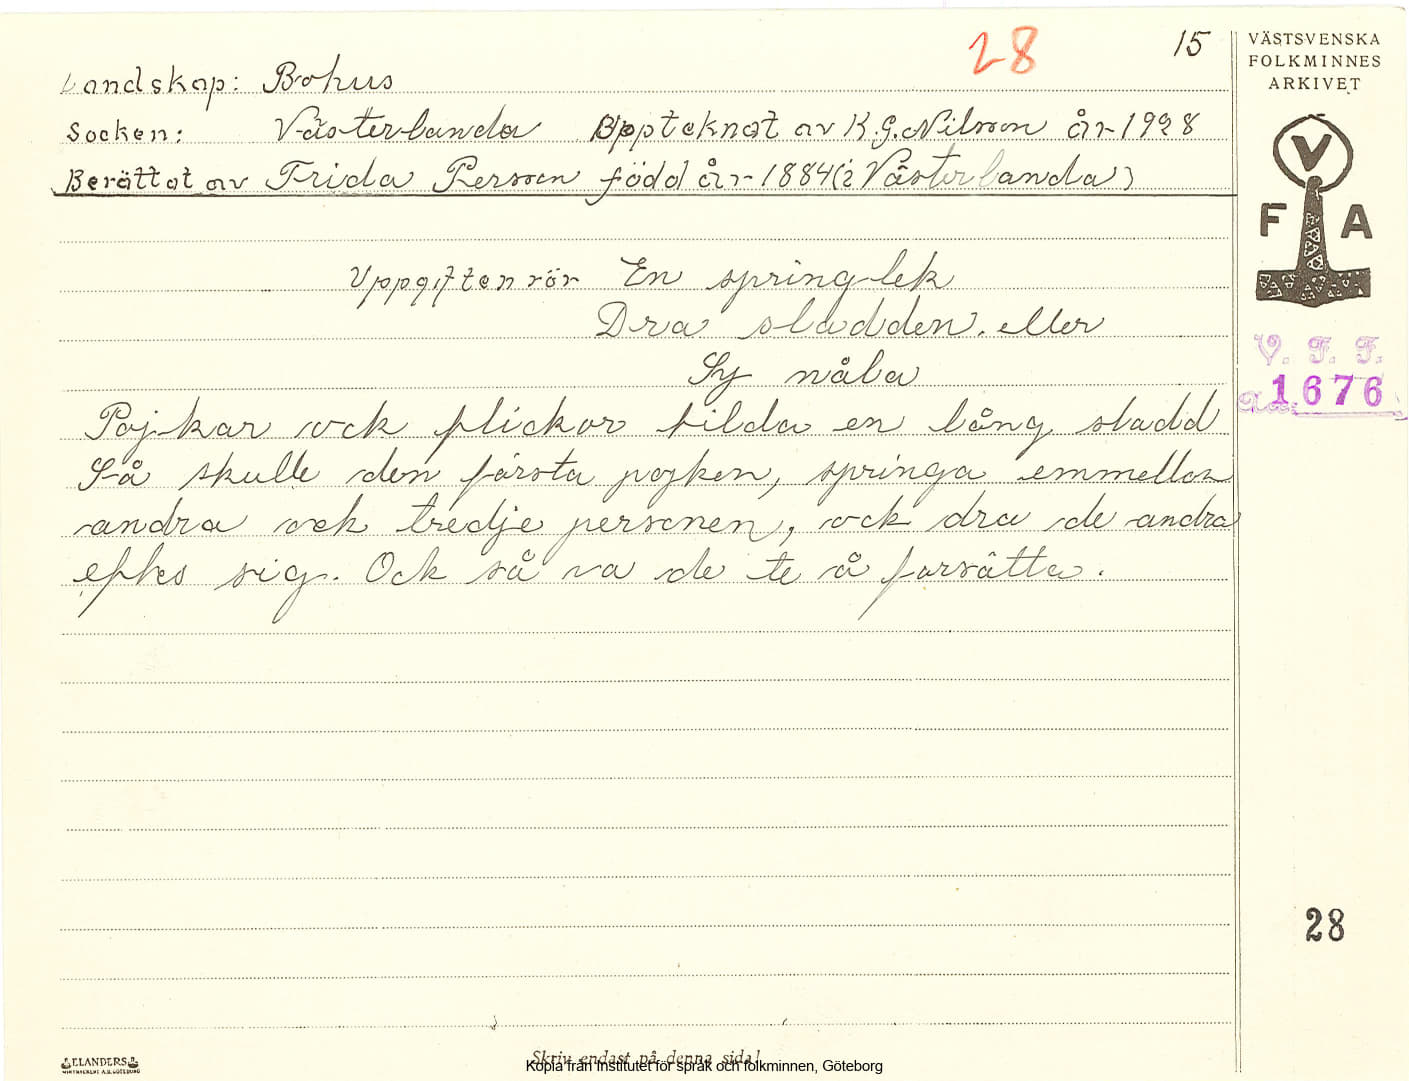 28 15
Landskap: Bohus
Socken: Västerlanda Upptecknat av K.G. Nilsson år 1928
Berättat av Frida Persson född år 1884 (i Västerlanda)
Uppgiften rör En springlek
Dra sladden. eller
Sy nåla
Pojkar ock flickor bilda en lång sladd
Så skulle den första pojken, springa emmellan
andra ock tredje personen, ock dra de andra
efter sig. Ock så va de te å forsätta.
VÄSTSVENSKA
FOLKMINNES
ARKIVET
V
F A
V. F. F.
1676
28
ELANDERS
Skriv endast på denna sida!
Kopia från Institutet för språk och folkminnen, Göteborg